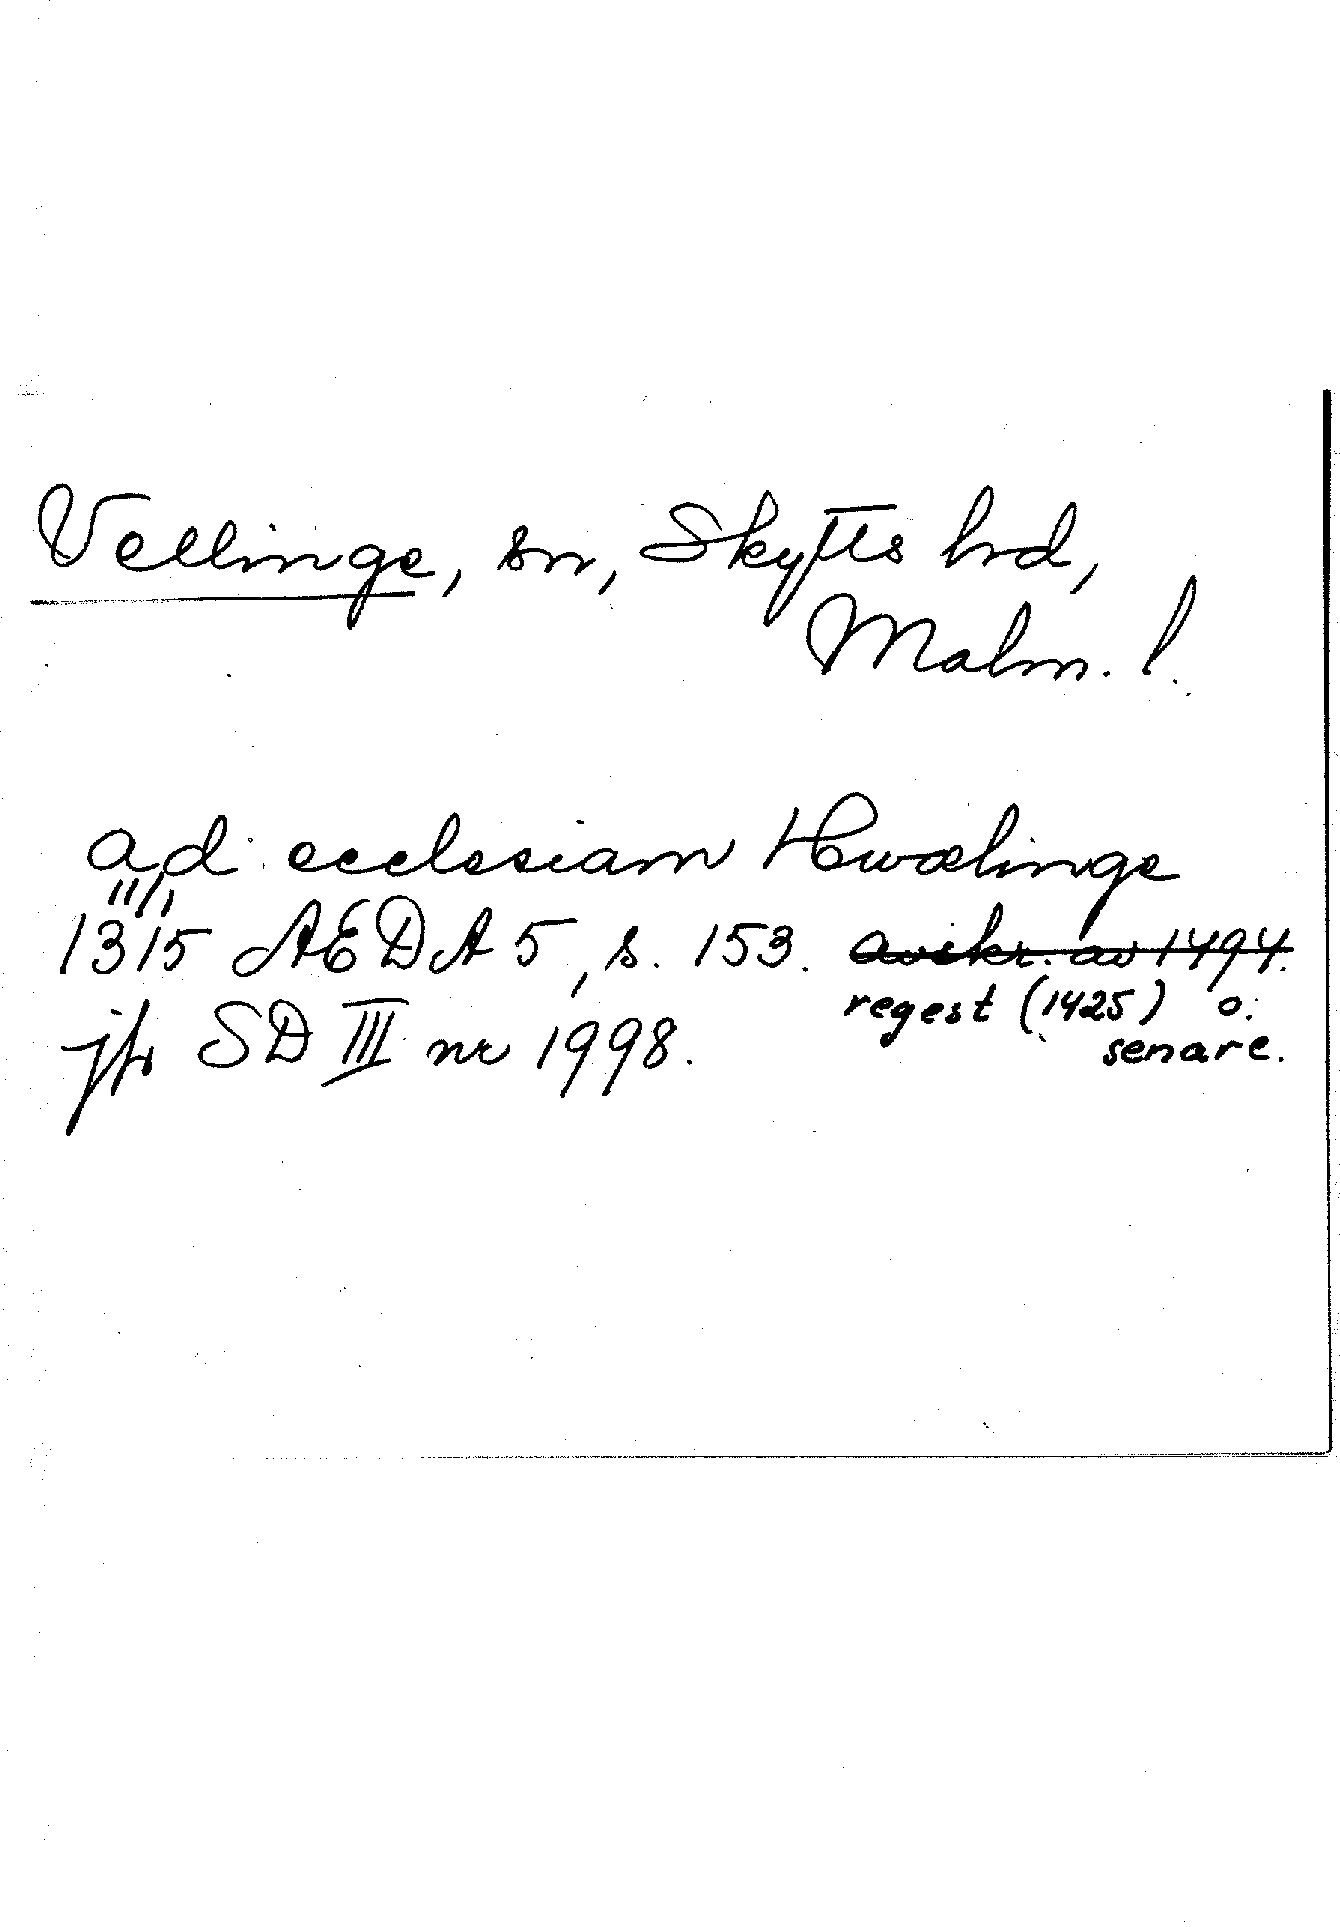 Vellinge, sn, Skytts hrd,
Malm. l.
ad ecclesiam Hwælinge
11/1
1315 AEDA 5, s. 153. avskr. av 1494.
regest (1425) o.
senare.
jfr SD III nr 1998.